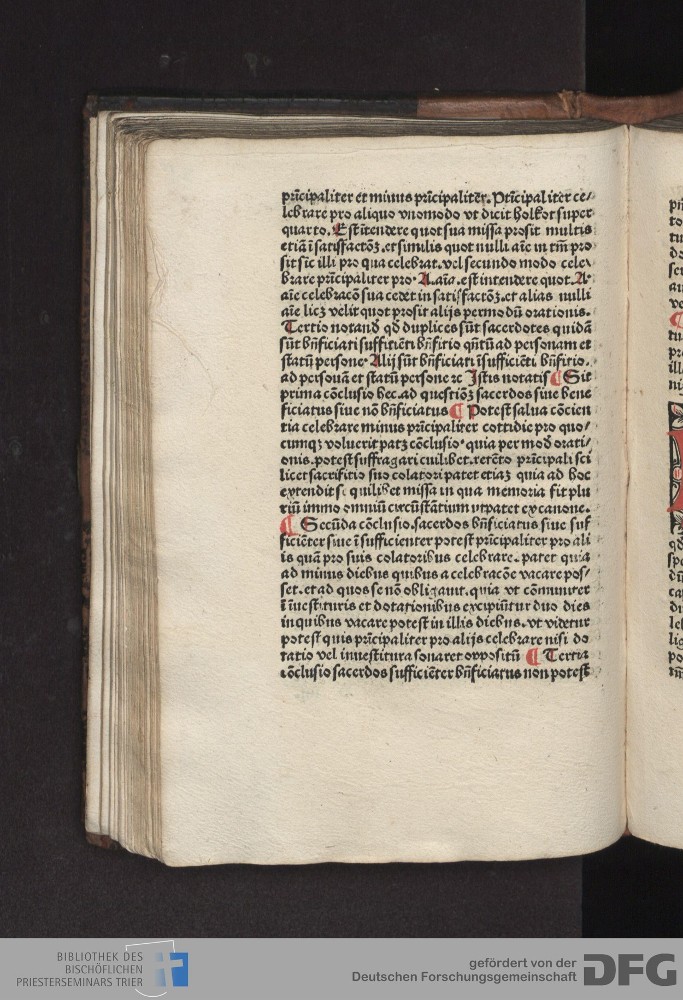 pr̄icipaliter et minus pr̄icipaliter. Pr̄icipaliter ce/
lebrare pro aliquo vnomodo vt dicit holkot super
quarto. Est ītendere quot sua missa prosit multis
etiā ī satisfactōꝫ. et similis quot nulli aīe in tm̄ pro
sit sīc illi pro qua celebrat. vel secundo modo cele/
brare pr̄icipaliter pro. A. aīa. est intendere quot. A.
aīe celebracō sua cedet in satisfactōꝫ. et alias nulli
aīe licꝫ velit quot prosit alijs per modū orationis.
Tertio notand̄ qd̄ duplices sūt sacerdotes quidā
sūt bn̄ficiati sufficiēti bn̄ficio qn̄tū ad personam et
statū persone. Alij sūt bn̄ficiati īsufficiēti bn̄ficio.
ad personā et statū persone ⁊c Istis notatis ¶ Sit
prima cōclusio hec. ad questiōꝫ sacerdos siue bene
ficiatus siue nō bn̄ficiatus ¶ Potest salua cōcien
tia celebrare minus pr̄icipaliter cottidie pro quo/
cumqꝫ voluerit patꝫ cōclusio. quia per mod̄ orati/
onis. potest suffragari cuilibet. retēto pr̄icipali sci
licet sacrificio suo colatori patet etiaꝫ quia ad hoc
extendit se quilibet missa in qua memoria fit plu
riū immo omniū circūstātium vt patet ex canone.
¶ Secūda cōclusio. sacerdos bn̄ficiatus siue suf
ficiēter siue ī sufficienter potest pr̄icipaliter pro ali
is quā pro suis colatoribus celebrare. patet quia
ad minus diebus quibus a celebracōe vacare pos/
set. et ad quos se nō obligauit. quia vt cōmuniter
ī īuestituris et dotationibus excipiūtur duo dies
in quibus vacare potest in illis diebus. vt videtur
potest quis pr̄icipaliter pro alijs celebrare nisi do
tatio vel inuestitura sonaret oppositū ¶ Tertia
cōclusio sacerdos sufficiēter bn̄ficiatus non potest
BIBLIOTHEK DES
BISCHÖFLICHEN
PRIESTERSEMINARS TRIER
gefördert von der
Deutschen Forschungsgemeinschaft
DFG